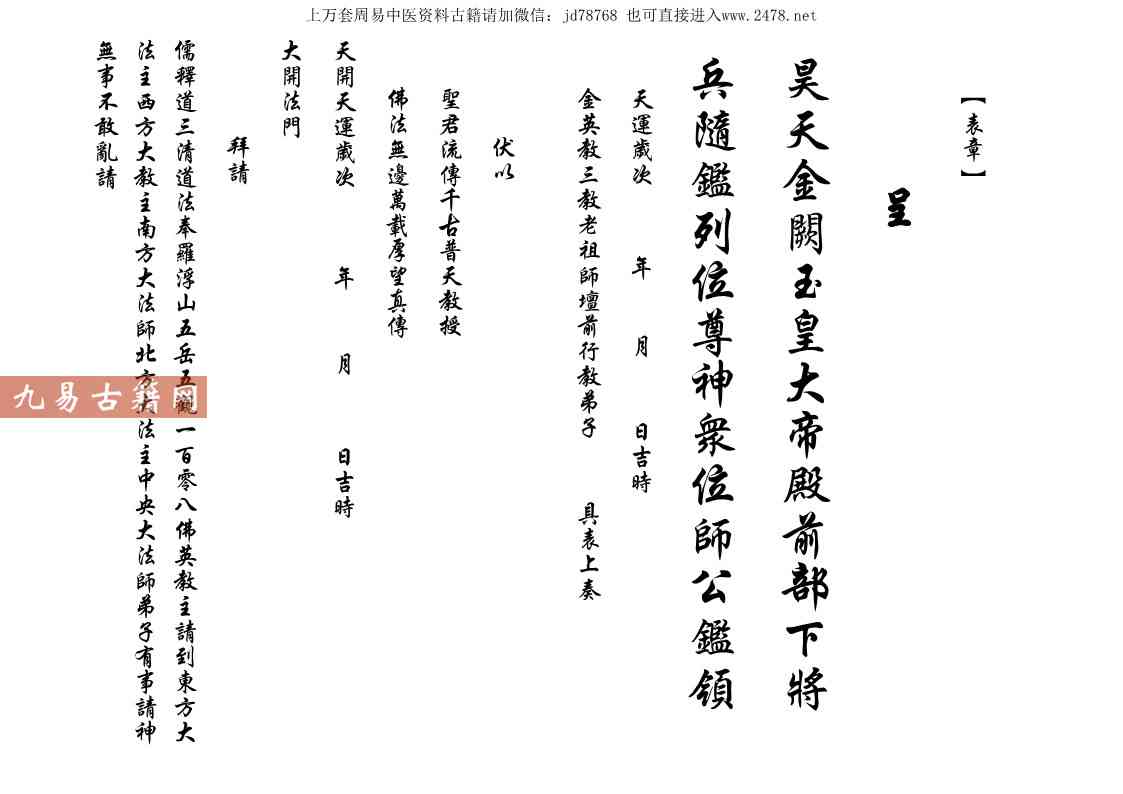 上万套周易中医资料古籍请加微信：jd78768 也可直接进入www.2478.net
【表章】
呈
昊天金闕玉皇大帝殿前部下將
兵隨鑑列位尊神衆位師公鑑領
天運歲次 年 月 日吉時
金英教三教老祖師壇前行教弟子 具表上奏
伏以
聖君流傳千古普天教授
佛法無邊萬載厚望真傳
天開天運歲次 年 月 日吉時
大開法門
拜請
儒釋道三清道法奉羅浮山五岳五觀一百零八佛英教主請到東方大
法主西方大教主南方大法師北方大法主中央大法師弟子有事請神
無事不敢亂請
九易古籍网